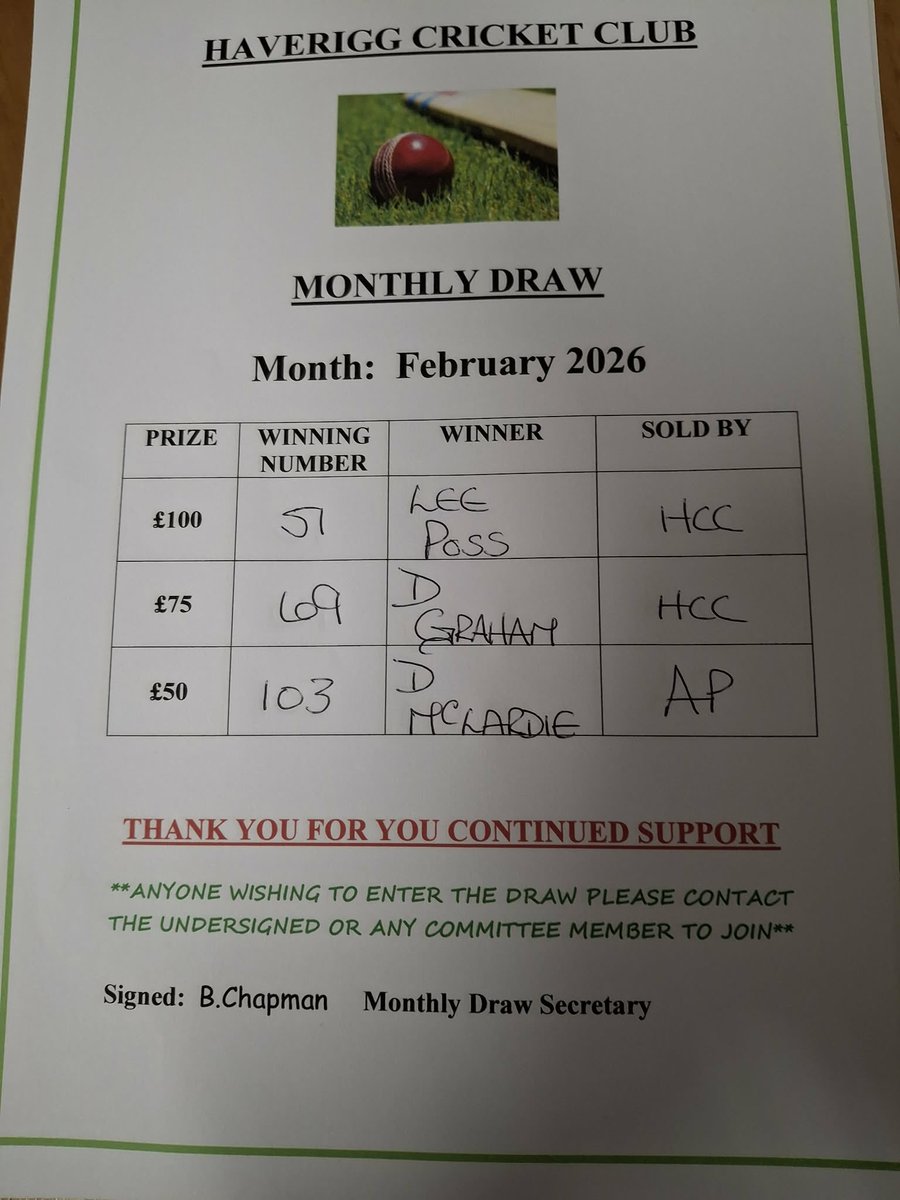 HAVERIGG CRICKET CLUB
MONTHLY DRAW
Month: February 2026
PRIZE WINNING NUMBER WINNER SOLD BY
£100 51 LEE POSS HCC
£75 69 D GRAHAM HCC
£50 103 D MCLARDIE AP
THANK YOU FOR YOU CONTINUED SUPPORT
**ANYONE WISHING TO ENTER THE DRAW PLEASE CONTACT
THE UNDERSIGNED OR ANY COMMITTEE MEMBER TO JOIN**
Signed: B.Chapman Monthly Draw Secretary